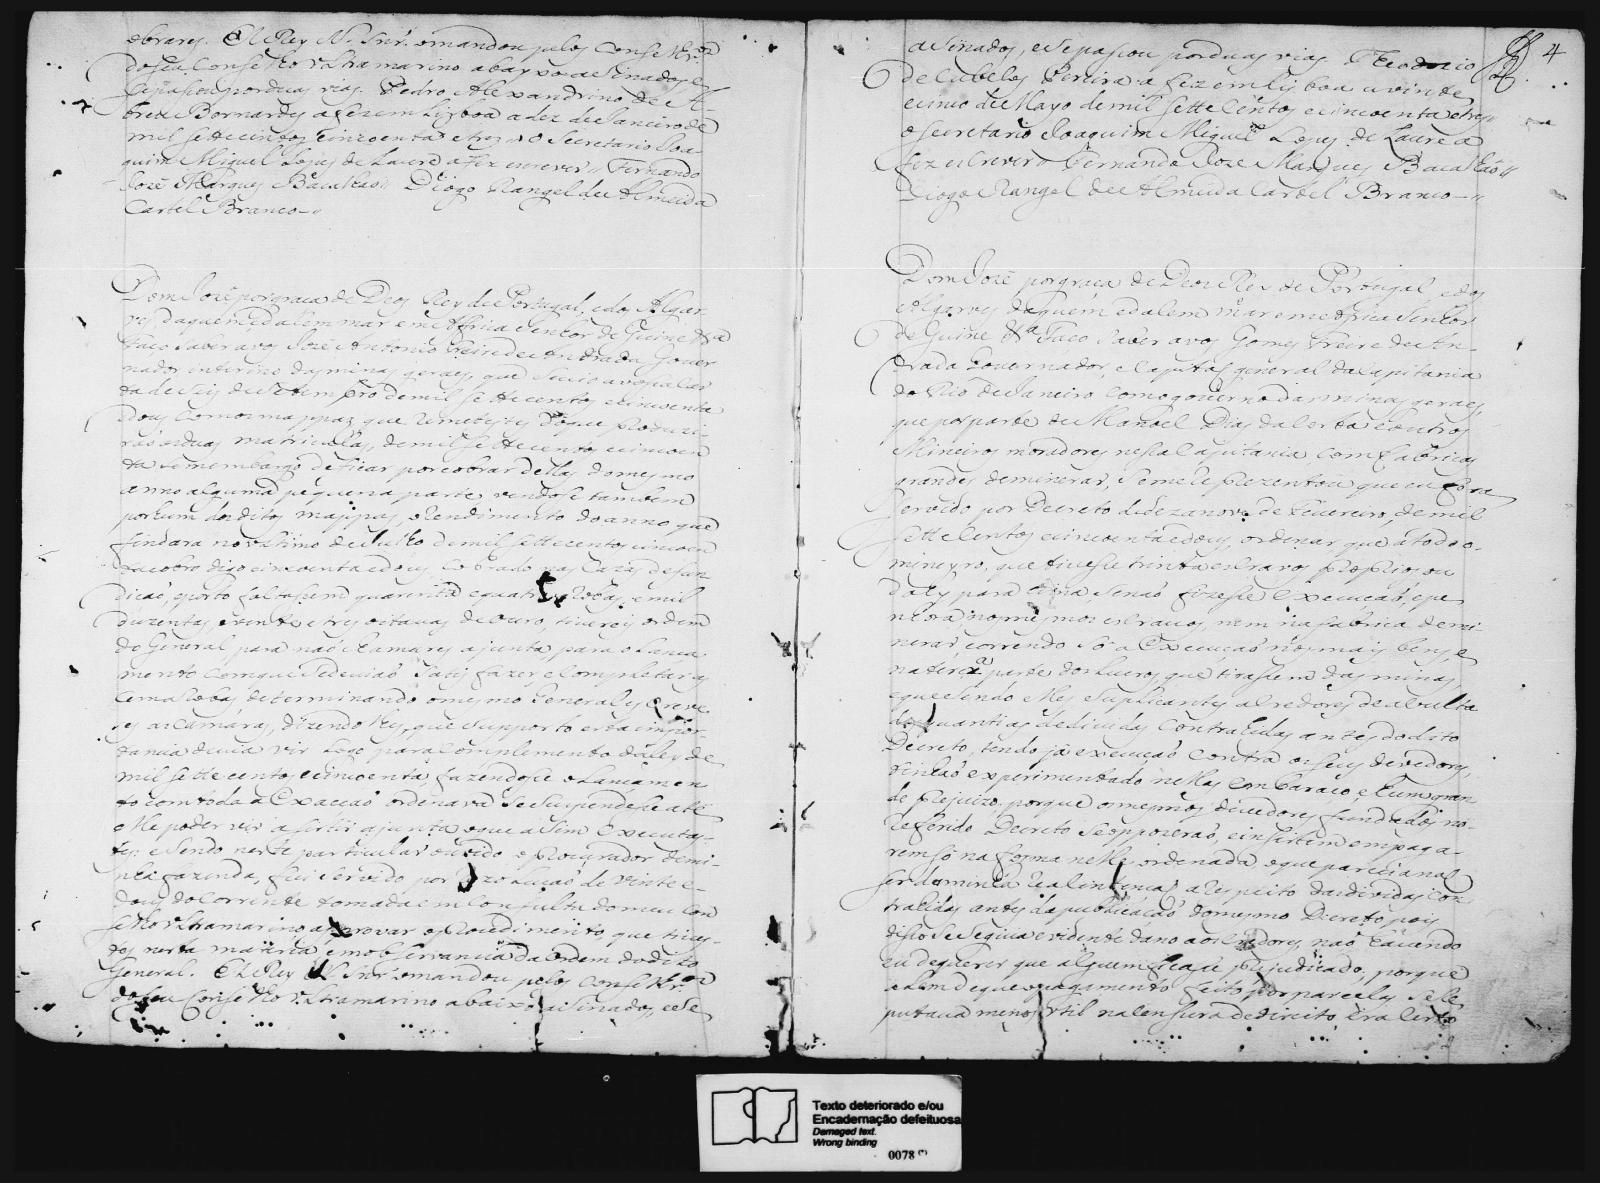 obrareis. El Rey N. Snr. o mandou pelos Conselhr.os
do seu Conselho Ultramarino abayxo asinados, e
se pasou por duas vias. Pedro Alexandrino de A-
breu Bernardes a fez em Lisboa a dez de Janeiro de
mil setecentos cincoenta e tres // O Secretario Joa-
quim Miguel Lopes de Lavre a fez escrever // Fernando
Jozé Marques Bacalhao // Diogo Rangel de Almeida
Castel Branco //
Dom Jozé por graça de Deos Rey de Portugal, e dos Algar-
ves, daquem, e dalem mar em Africa Senhor de Guine &a
Faço saber a vos Jozé Antonio Freire de Andrada Gover-
nador interino das minas geraes, que se vio a vosa car-
ta de seis de Setembro de mil setecentos e cincoenta
e dous com os mappas, que remetestes do que produzi-
rão as duas matriculas, de mil setecentos e cincoen-
ta sem embargo de ficar por cobrar dellas do mesmo
anno alguma pequena parte, vendose tambem
por hum dos ditos mappas, o rendimento do anno, que
findara no ultimo de Julho de mil settecentos cincoen
ta e outo digo cincoenta e dous, cobrado nas Cazas de fun-
dição, e porto faltasem quarenta e quatro arrobas, e mil
duzentas e vinte e tres oitavas de ouro, tivereis ordem
do General para não chamares a junta, para o lança
mento com que se devião satisfazer e completar as
cem arrobas, determinando o mesmo General escreve-
seis as camaras, dizendo lhes, que supposto esta impor-
tancia devia vir logo para complemento da ley de
mil settecentos e cincoenta, fazendose o lançamen-
to com toda a exacção ordenava se suspendese até
elle poder vir asistir a junta o que asim executas-
tes: e sendo neste particular ouvido o Procurador de mi-
nha fazenda, fui servido por rezolução de vinte e
dous do corrente tomada em Consulta do meu Con
selho Ultramarino, aprovar o procedimento que tives-
tes nesta materia em observancia da ordem do dito
General. El Rey N. Snr. o mandou pelos Conselhr.os
do seu Conselho Ultramarino abaixo asinados, e se
4
asinados, e se pasou por duas vias. Theodozio
de Cubelos Pereira a fez em Lisboa a vinte
e cinco de Mayo de mil sette centos e cincoenta e tres //
o secretario Joaquim Miguel Lopes de Lavre a
fez escrever // Fernando Joze Marques Bacalhao //
Diogo Rangel de Almeida Castel Branco //
Dom Jozé por graça de Deos Rey de Portugal e dos
Algarves daquem e dalem mar em Africa Senhor
de Guiné &a Faço saber a vos Gomes Freire de An-
drada Governador, e Capitão general da Capitania
do Rio de Janeiro com o governo das minas geraes,
que por parte de Manoel Dias da Costa e outros
Mineiros moradores nesa Capitania com fabricas
grandes de minerar, se me reprezentou que eu fora
servido por Decreto de dezanove de Fevereiro, de mil
sette centos e cincoenta e dous, ordenar que a todo o
mineyro, que tivese trinta escravos proprios ou
dahy para sima, se não fizese execução, e pe-
nhora nos mesmos escravos, nem na fabrica de mi-
nerar, correndo só a execução nos mais bens, e
na terça parte dos lucros, que tirasem das minas,
e que sendo elles suplicantes acredores de avulta
das quantias de dividas contrahidas antes do dito
Decreto, tendo já execução contra os seus devedores,
tinhão experimentado nellas embaraço e hum gran-
de prejuizo, porque os mesmos devedores fundados no
referido Decreto se oppozerão, e insistem em paga-
rem só na forma nelle ordenada o que parecia não
ser da minha real intenção a respeito das dividas con-
trahidas antes da publicação do mesmo Decreto, pois
disto se seguia evidente dano aos credores, não havendo
eu de querer que alguem ficase prejudicado, porque
alem de que o pagamento feito por parcelas se re
putava menos util na censura de direito, era certo
Texto deteriorado e/ou
Encadernação defeituosa
Damaged text.
Wrong binding
0078 (*)